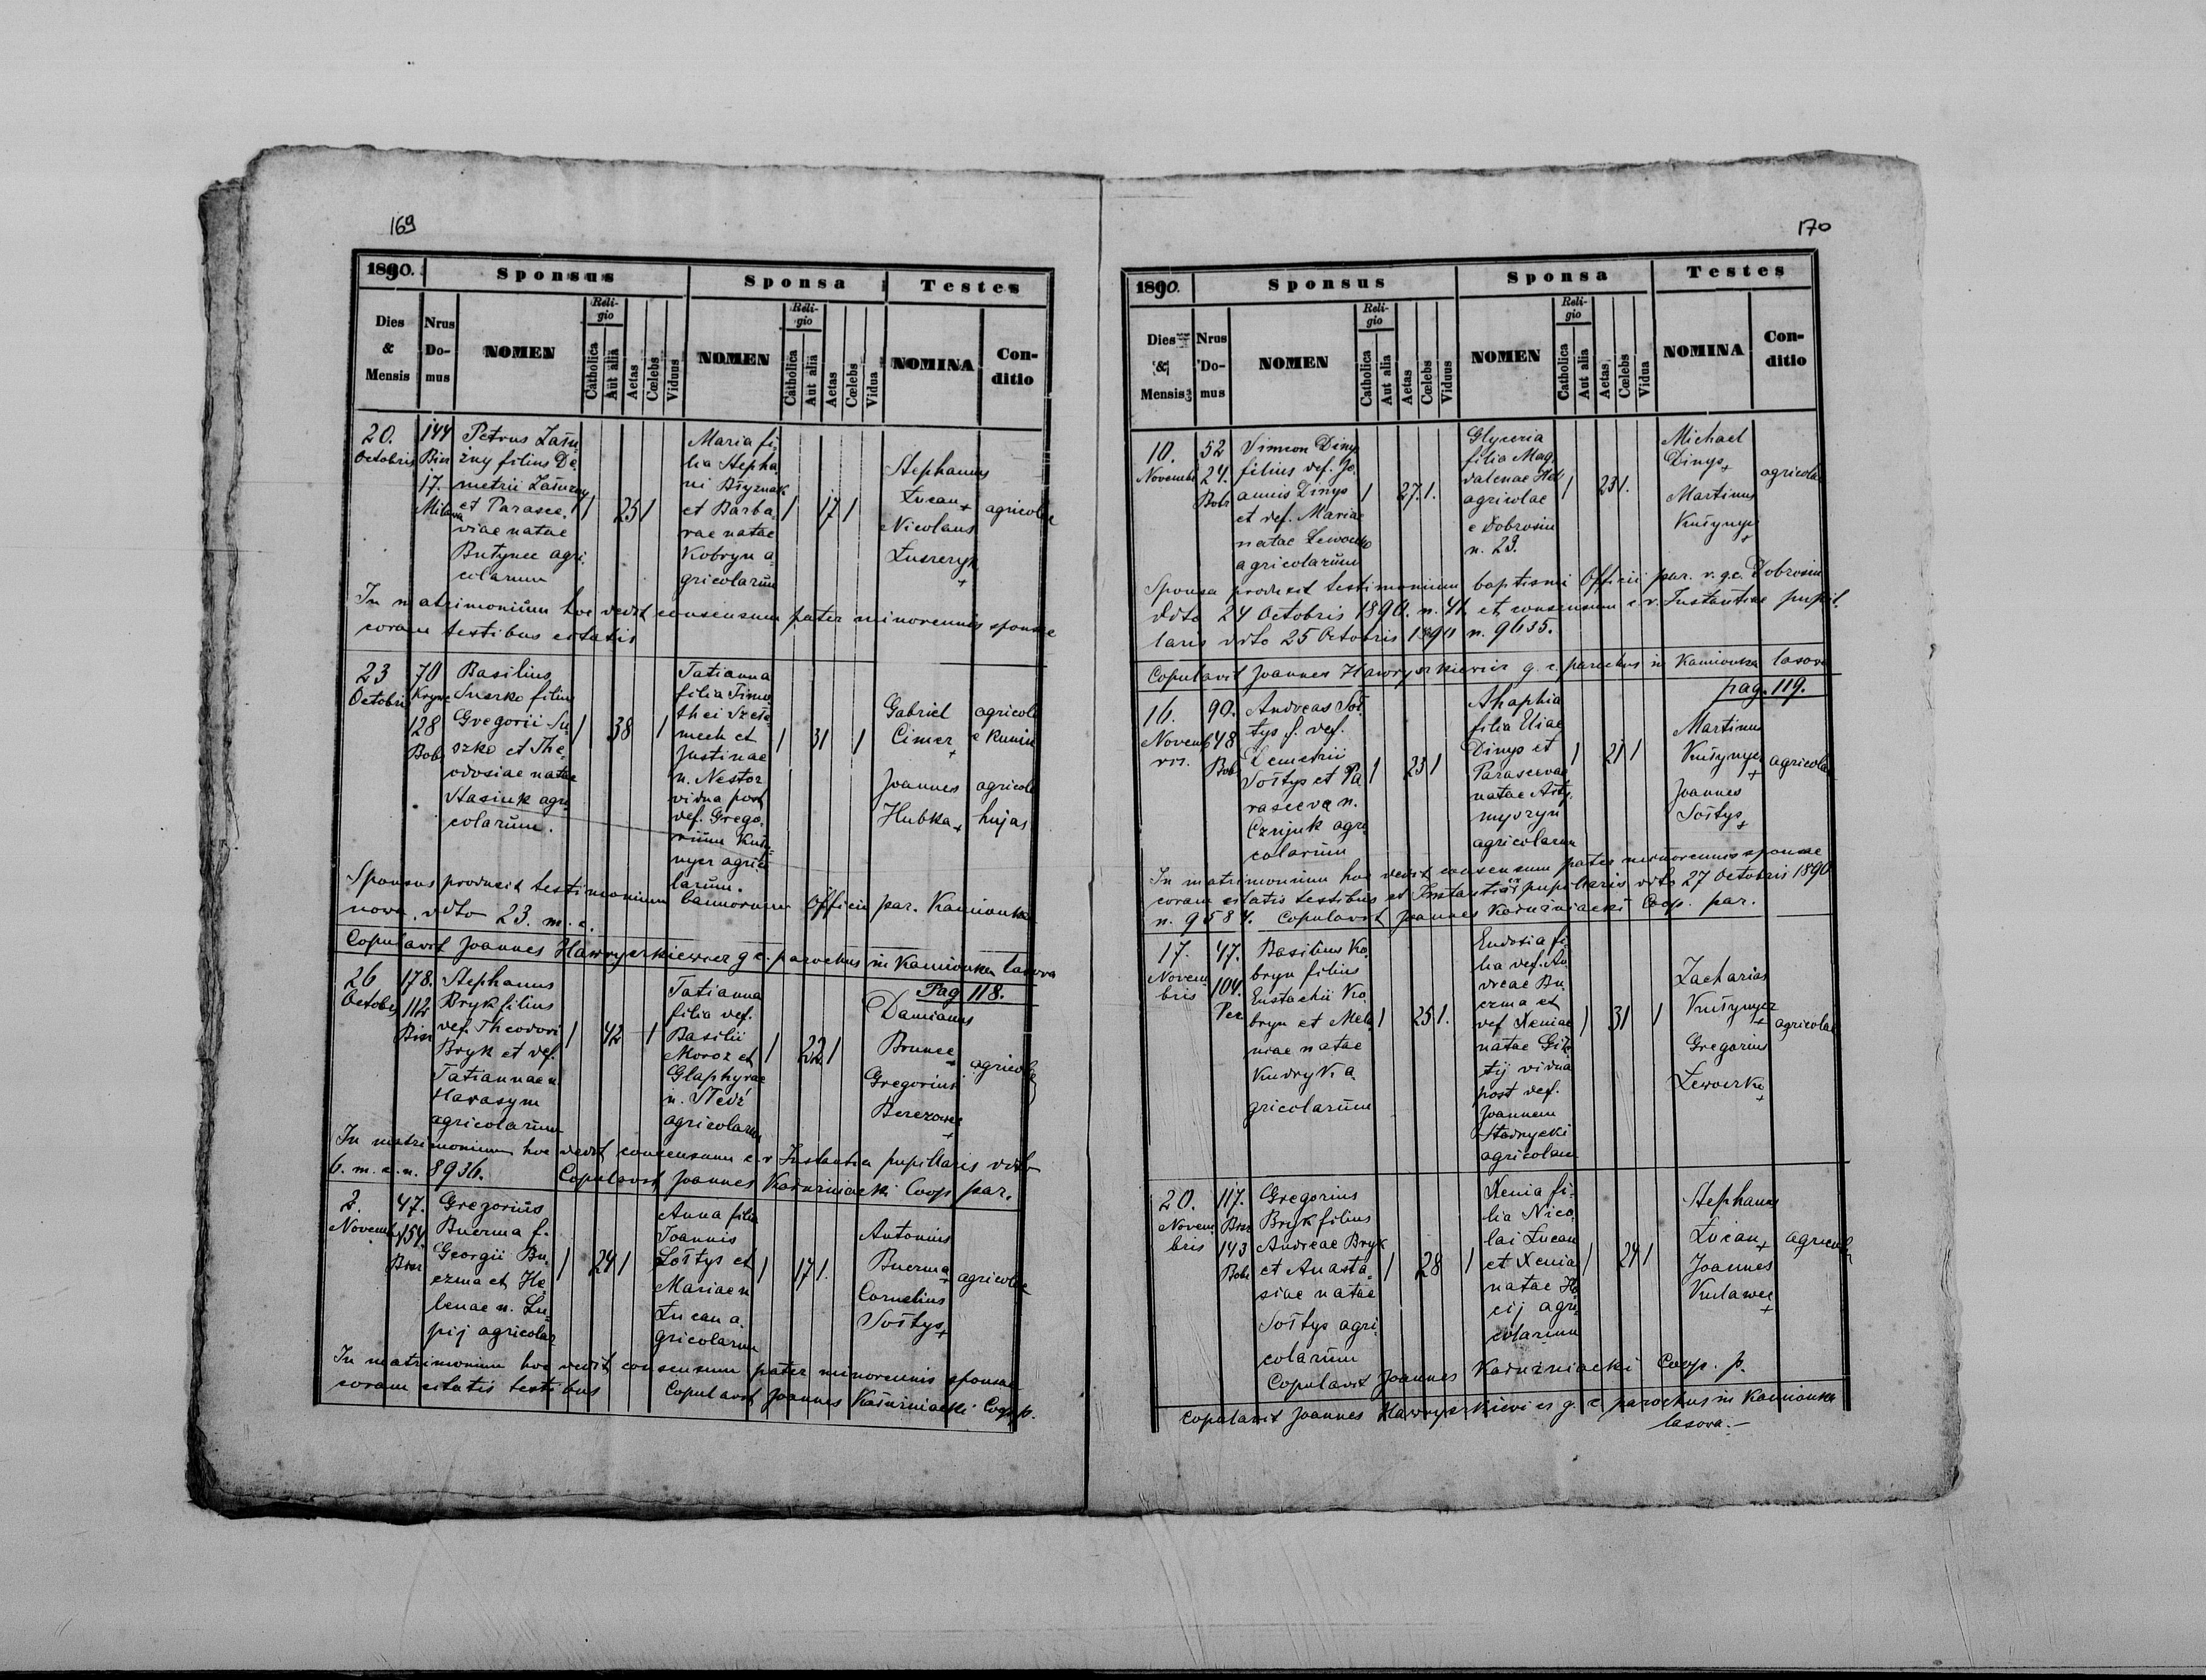 169
1890.
Sponsus
Sponsa
Testes
Dies & Mensis
Nrus Domus
NOMEN
Religio
Catholica
Aut alia
Aetas
Cœlebs
Viduus
NOMEN
Religio
Catholica
Aut alia
Aetas
Cœlebs
Vidua
NOMINA
Conditio
20.
Octobris
144
Bier
17.
Petrus
filius De
metrii
et Parasce
viae natae
Butynec agri
colarum
1 25 1
Maria fi
lia Stepha
ni
et Barba
rae natae
Kobryn a
gricolarum
1 17 1
Stephanus
Łucan +
Nicolaus
+
agricolae
In matrimonium hoc dedit consensum pater minorennis sponsae
coram testibus citatis
23
Octobri
70
128
Bob
Basilius
Suszko filius
Gregorii Su
szko et The
odosiae natae
Stasiuk agri
colarum.
1 38 1
Tatianna
filia Timo
thei
et
Justinae
n. Nestor
vidua post
def. Grego
rium
agrico
larum.
1 31 1
Gabriel
Cimer +
Joannes
Hubka +
agricola
e Runin
agricola
hujas
Sponsus produxit testimonium bannorum Officii par. Kamionka
nova, ddto 23. m. c.
Copulavit Joannes Hawryszkiewicz g c. parochus in Kamionka lasova
Pag 118.
26
Octobr
178.
112
Stephanus
Bryk filius
def. Theodori
Bryk et def.
Tatiannae n.
Harasym
agricolarum
1 42 1
Tatianna
filia def.
Basilii
Moroz et
Glaphyrae
n.
agricolarum
1 22 1
Damianus
Brunec +
Gregorius
+
agricolae
In matrimonium hoc dedit consensum c. r Instantia pupillaris ddto
6. m. c. n. 8936. Copulavit Joannes Kadurniacki Coop par.
2.
Novemb
47.
154
Gregorius
Buczma f.
Georgii Bu
czma et He
lenae n. Łu
pij agricolar
1 24 1
Anna filia
Joannis
Sołtys et
Mariae n
Łucan a
gricolarum
1 17 1.
Antonius
Buczma +
Cornelius
Sołtys +
agricolae
In matrimonium hoc dedit consensum pater minorennis sponsae
coram citatis testibus Copulavit Joannes Kadurniacki Coop p.
170
1890.
Sponsus
Sponsa
Testes
Dies & Mensis
Nrus Domus
NOMEN
Religio
Catholica
Aut alia
Aetas
Cœlebs
Viduus
NOMEN
Religio
Catholica
Aut alia
Aetas
Cœlebs
Vidua
NOMINA
Conditio
10.
Novemb
52
24.
Bobr
Simeon Dinys
filius def. Jo
annis Dinys
et def. Mariae
natae
agricolarum
1 27. 1.
Glyceria
filia Mag
dalenae
agricolae
e Dobrosin
n. 23.
1 23 1.
Michael
Dinys +
Martinus
Kuśnyer
+
agricolae
Sponsa produxit testimonium baptismi Officii par. r. g.c. Dobrosin
ddto 24 Octobris 1890. n. 41. et consensum c. r. Instantiae pupil
laris ddto 25 Octobris 1890 n. 9635.
Copulavit Joannes Hawryszkiewicz g. c. parochus in Kamionka lasova
pag. 119.
16.
Novemb
ris.
90.
48
Bob
Andreas Soł
tys f. def.
Demetrii
Sołtys et Pa
rasceva n.
agri
colarum
1 23 1
Ahaphia
filia Eliae
Dinys et
Parascevae
natae
agricolarum
1 21 1
Martinus
Kuśnyer
+
Joannes
Sołtys +
agricolae
In matrimonium hoc dedit consensum pater minorennis sponsae
coram citatis testibus et Instantia pupillaris ddto 27 Octobris 1890
n. 9584. Copulavit Joannes Kadurniacki Coop. par.
17.
Novem
bris
47.
104.
Basilius Ko
bryn filius
Eustachii Ko
bryn et Mela
niae natae
Kudryk a
gricolarum
1 25 1.
Eudosia fi
lia def. An
dreae Bu
czma et
def Xeniae
natae
vidua
post def.
Joannem
Stadnycki
agricolam
1 31 1
Zacharias
Kuśnyer
+
Gregorius
+
agricolae
20.
Novem
bris
117.
143
Bobr
Gregorius
Bryk filius
Andreae Bryk
et Anasta
siae natae
Sołtys agri
colarum
1 28 1
Xenia fi
lia Nico
lai Łucan
et Xenia
natae
agri
colarum
1 24 1
Stephanus
Łucan +
Joannes
Kulawec
+
agricolae
Copulavit Joannes Kadurniacki Coop. p.
Copulavit Joannes Hawryszkiewicz g. c parochus in Kamionka
lasova.—